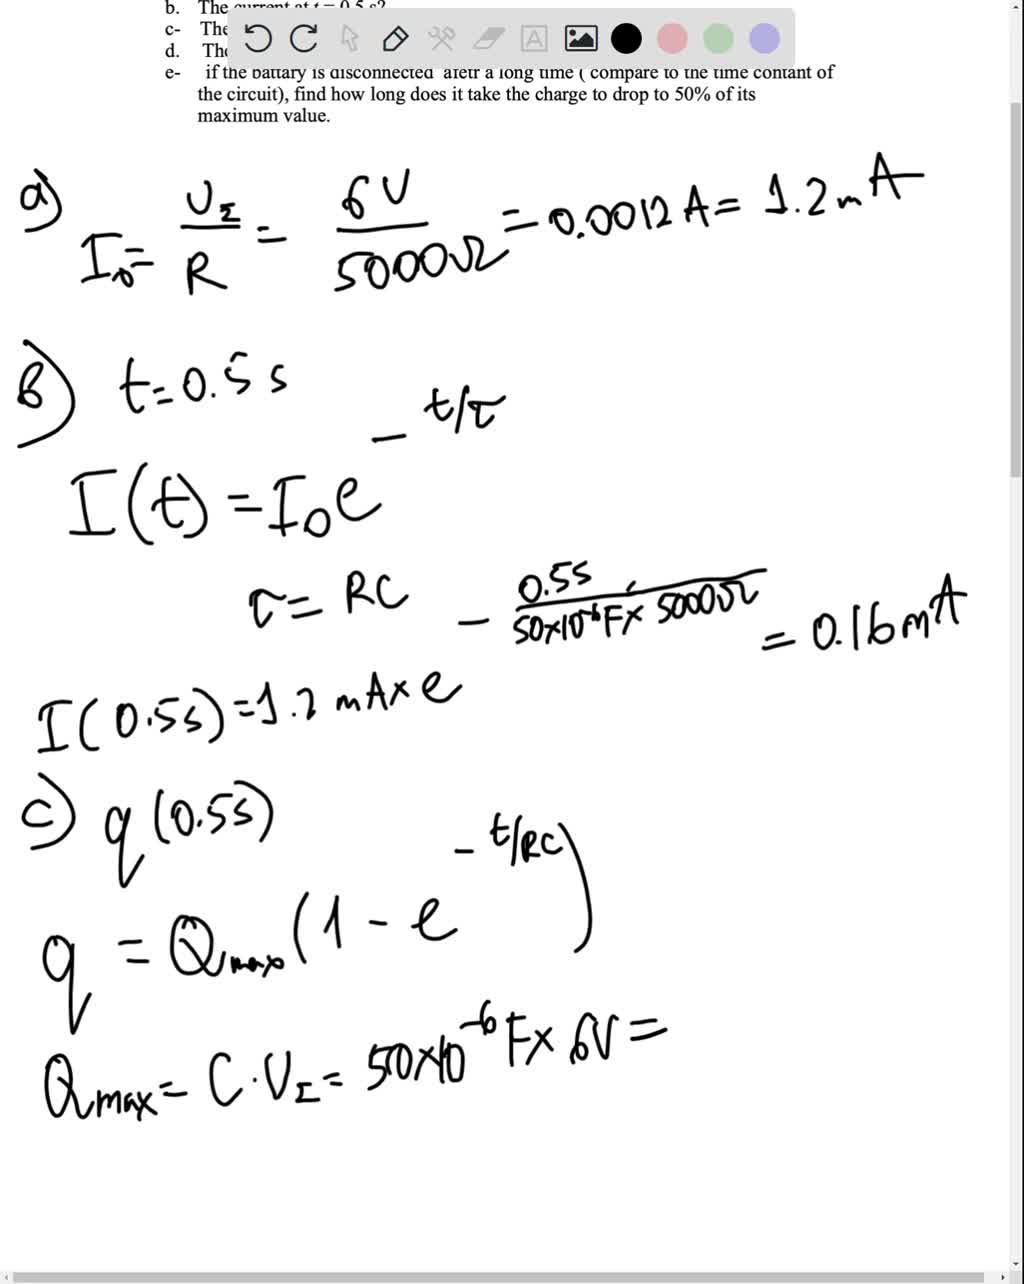 b. The current at t = 0.5 s?
c- The
d. The
e- if the battary is disconnected afetr a long time ( compare to the time contant of
the circuit), find how long does it take the charge to drop to 50% of its
maximum value.
a) I₀ = U_Σ / R = 6V / 5000Ω = 0.0012 A = 1.2 mA
b) t = 0.5 s
I(t) = I₀e^(-t/τ)
τ = RC
I(0.5s) = 1.2 mA × e^(-0.5s / (50×10⁻⁶F × 5000Ω)) = 0.16 mA
c) q(0.5s)
q = Qmax(1 - e^(-t/RC))
Qmax = C·U_Σ = 50×10⁻⁶ F × 6V =